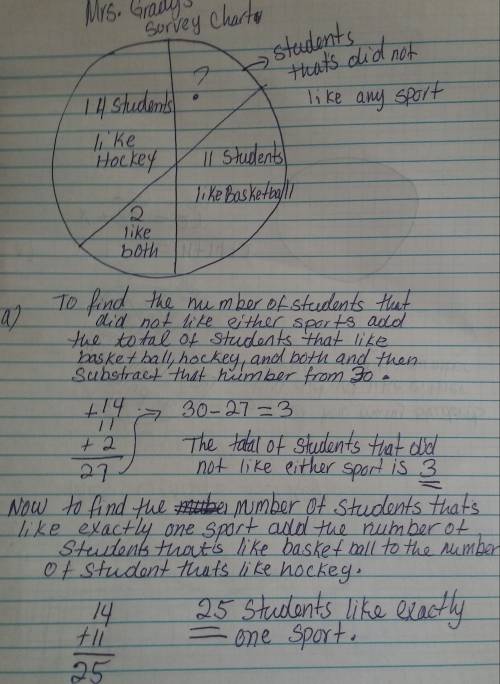 Mrs. Gradys
Survey Chart
?
Students
that's did not
like any sport
14 Students
like
Hockey
11 Students
like Basketball
2
like
both
a) To find the number of students that
did not like either sports add
the total of students that like
basketball, hockey, and both and then
substract that number from 30.
+14
11
+ 2
27
30-27=3
The total of students that did
not like either sport is 3
Now to find the number of students that's
like exactly one sport add the number of
students that's like basket ball to the number
of student that's like hockey.
14
+11
25
25 Students like exactly
one sport.